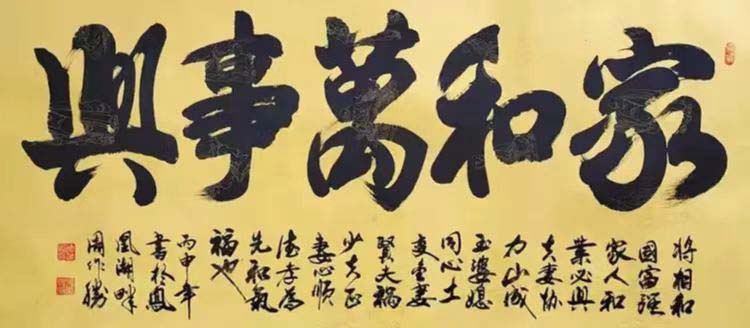 家和萬事興
将相和
國富强
家人和
業必興
夫妻协
力山成
玉婆媳
同心土
变金妻
賢夫禍
少夫正
妻心順
德孝為
先和氣
福也
丙申年
書於鳳
凰湖畔
周作勝